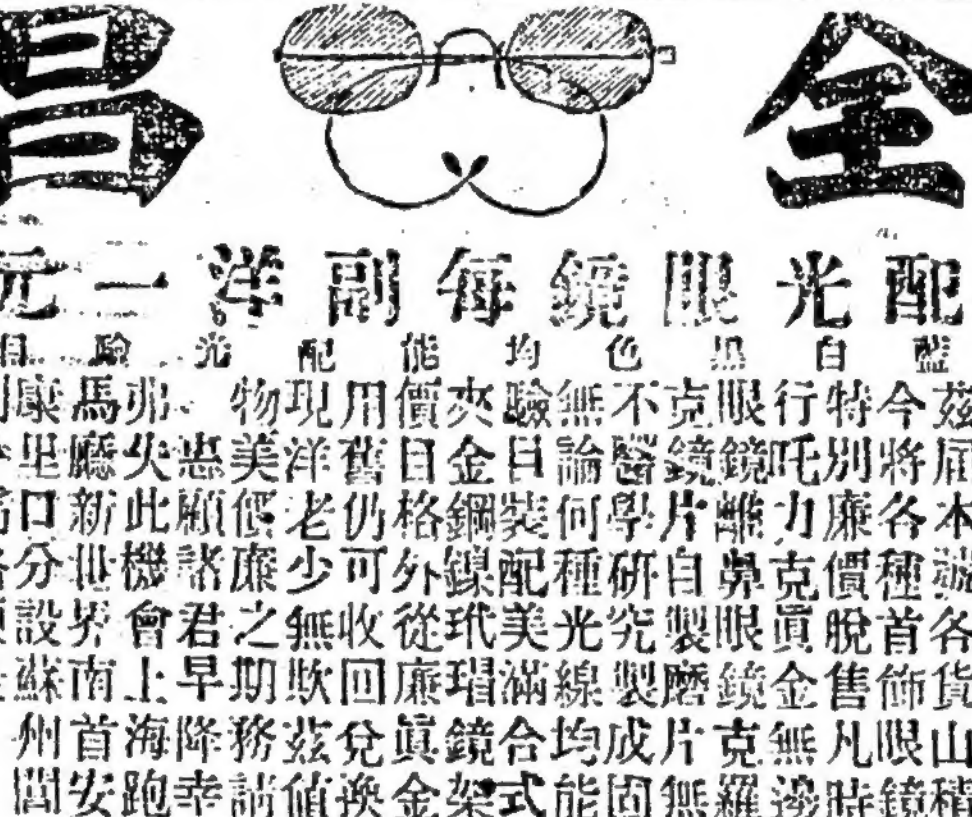 全昌
配光眼鏡每副洋一元
藍白黑色均能配光驗目
茲屆本號各貨山積
今將各種首飾眼鏡
特別廉價脫售凡時
行吒力克眞金無邊
眼鏡離鼻眼鏡克羅
克鏡片自製磨片無
不醫學研究製成固
無論何種光線均能
驗目裝配美滿合式
夾金鋼鎳玳瑁鏡架
價目格外從廉眞金
用舊仍可收回兌換
現洋老少無欺茲值
物美價廉之期務請
惠願諸君早降幸
弗失此機會上海跑
馬廳新世界南首安
康里口分設蘇州閶